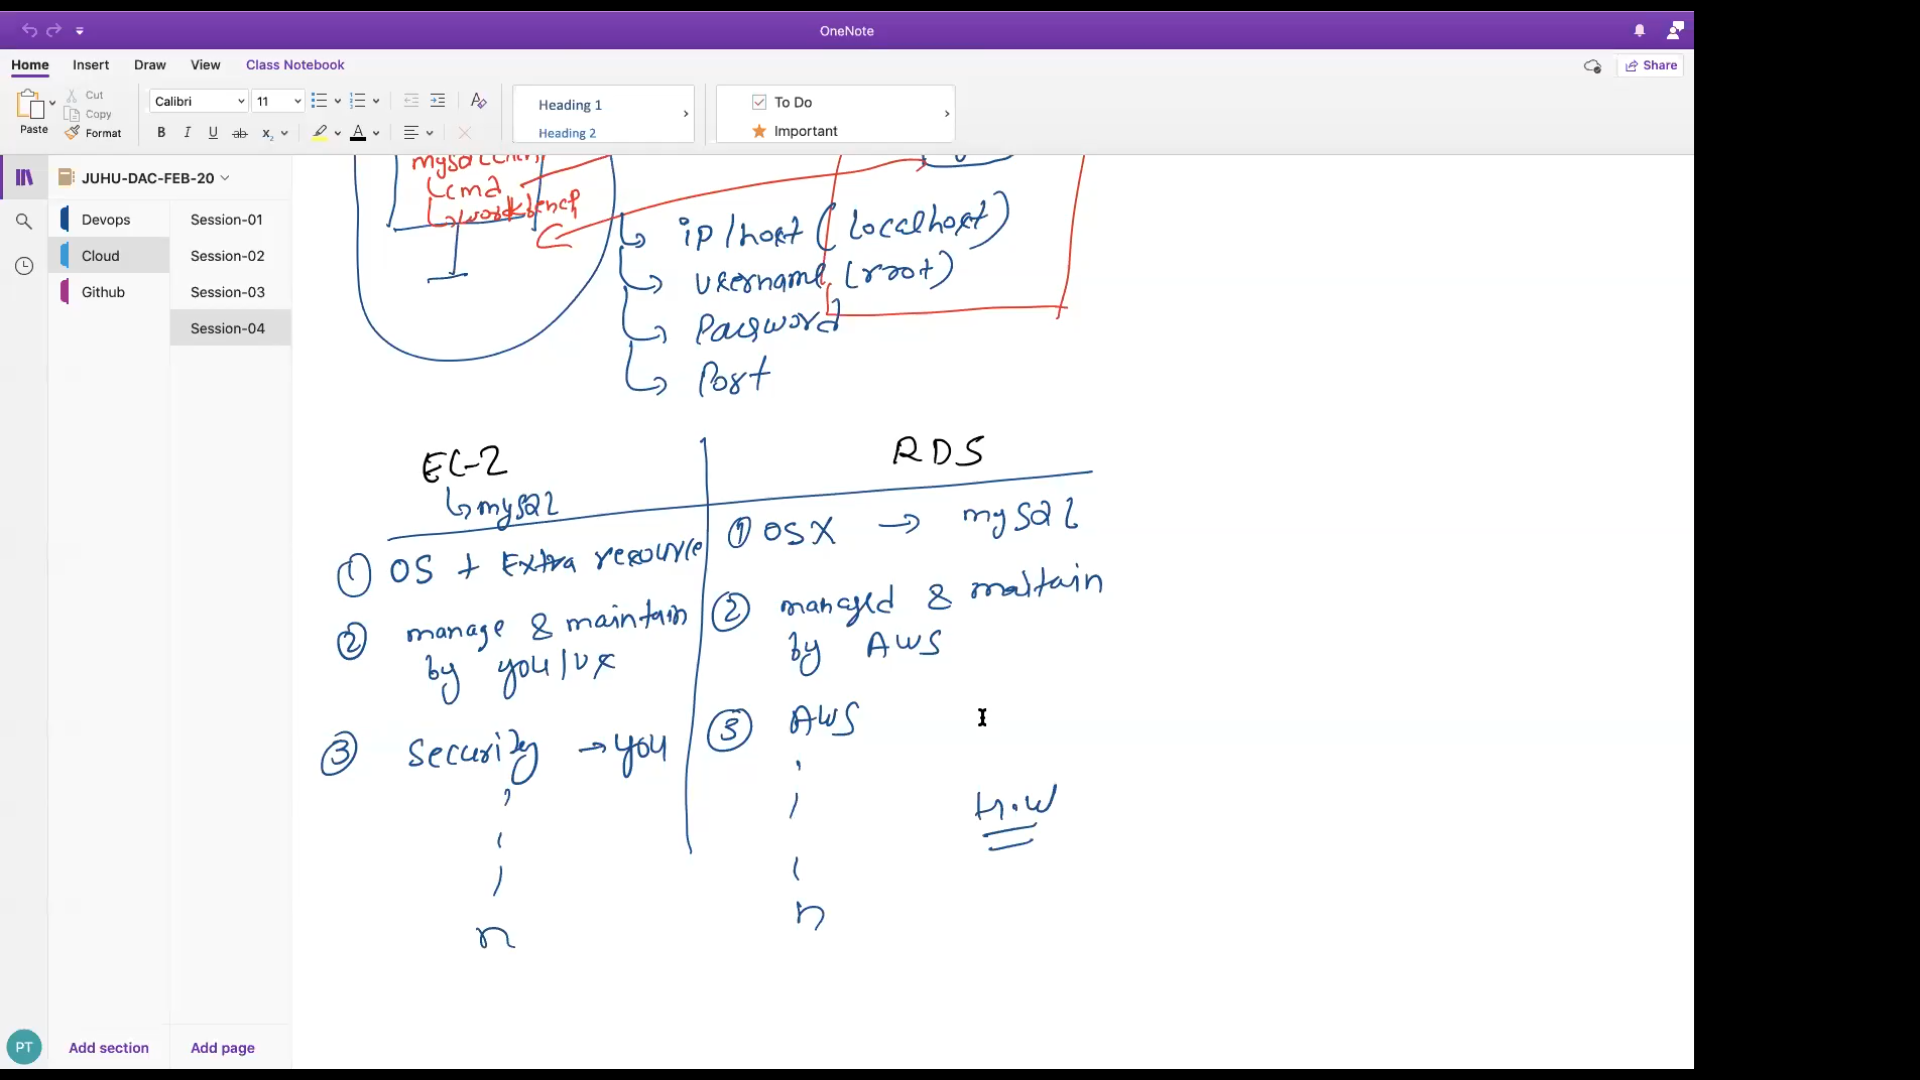 OneNote
Home Insert Draw View Class Notebook
Share
Paste
Cut
Copy
Format
Calibri 11
B I U ab x₂ A
Heading 1
Heading 2
To Do
Important
JUHU-DAC-FEB-20
Devops
Cloud
Github
Session-01
Session-02
Session-03
Session-04
cmd
workbench
ip/host (localhost)
username (root)
Password
Port
EC-2
mysql
RDS
① OS + Extra resource
② manage & maintain
by you/us
③ Security → you
n
① OS X → mysql
② managed & maitain
by AWS
③ AWS
n
H.W
PT
Add section
Add page